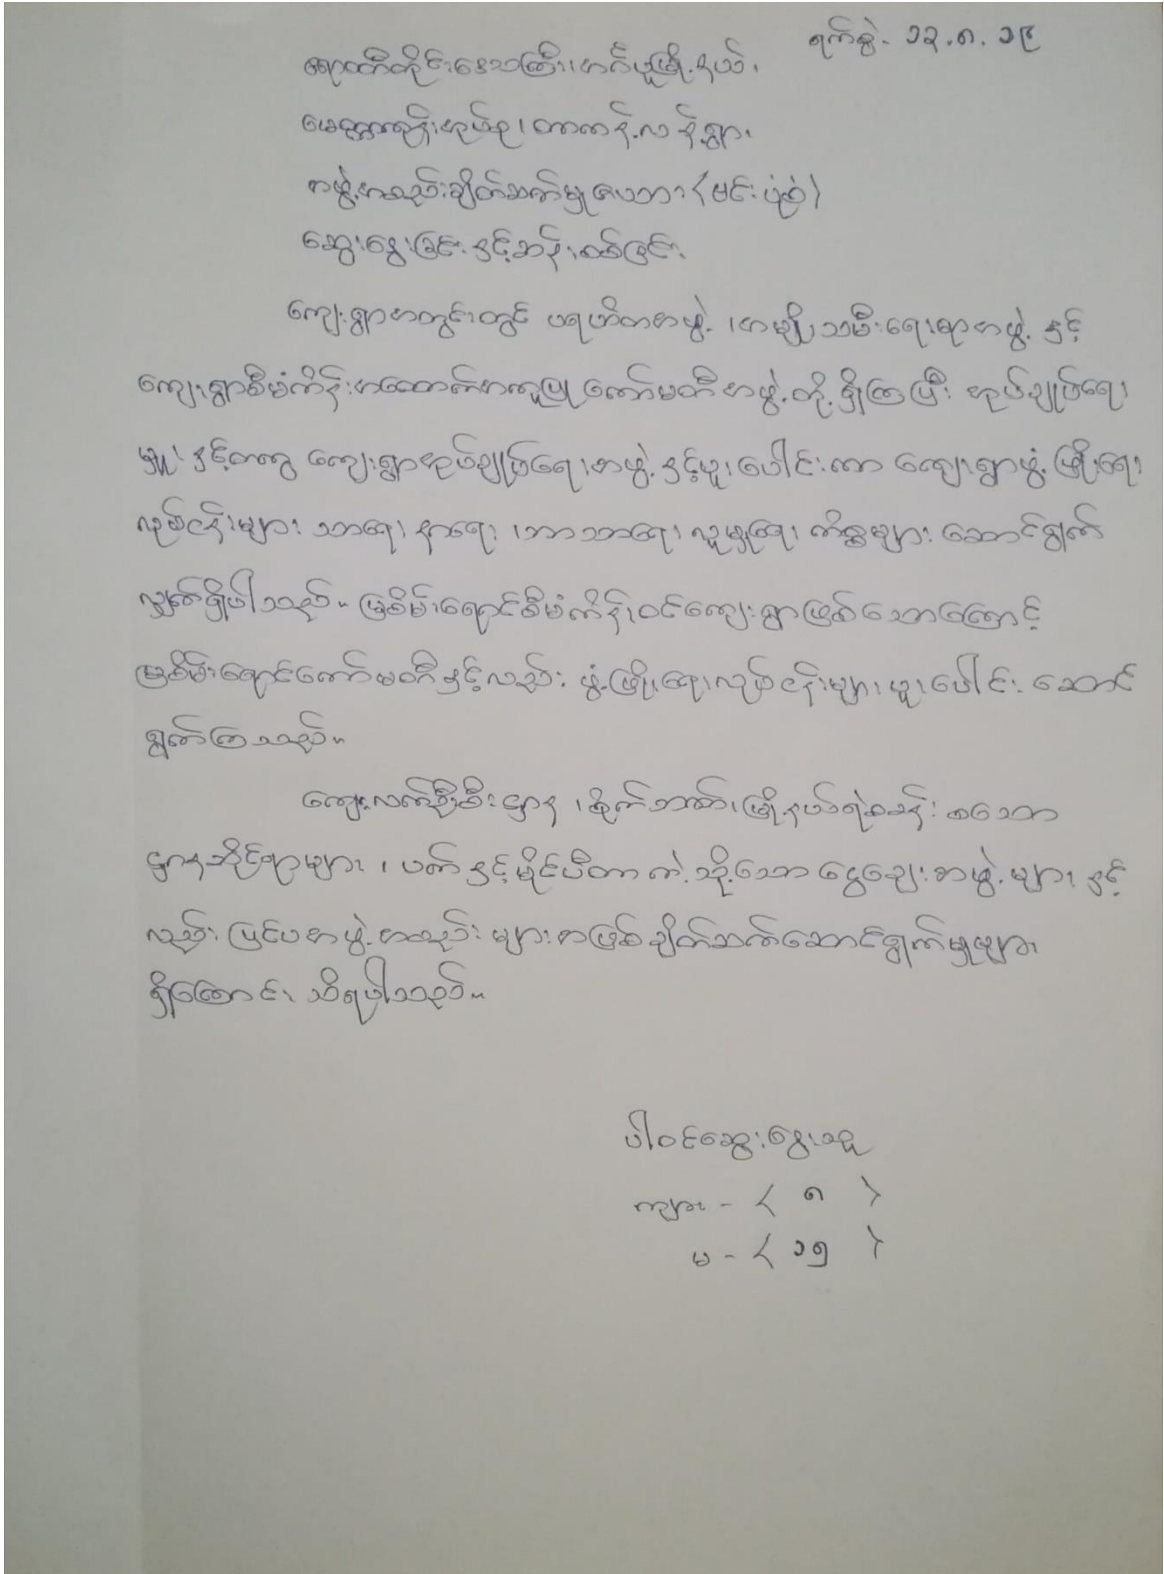 ရက်စွဲ- ၁၃.၈.၁၉
ဧရာဝတီတိုင်းဒေသကြီး၊ အင်္ဂပူမြို့နယ်၊
အုပ်စု၊ ရွာ၊
အဖွဲ့အစည်းချိတ်ဆက်မှုဇယား (ဗင်းပုံစံ)
ဆွေးနွေးခြင်းနှင့်ဆန်းစစ်ခြင်း
ကျေးရွာအတွင်းတွင် ပရဟိတအဖွဲ့၊ အမျိုးသမီးရေးရာအဖွဲ့ နှင့်
ကျေးရွာစီမံကိန်းအထောက်အကူပြု ကော်မတီအဖွဲ့တို့ ရှိကြပြီး အုပ်ချုပ်ရေး
မှူး နှင့်တကွ ကျေးရွာအုပ်ချုပ်ရေးအဖွဲ့နှင့်ပူးပေါင်းကာ ကျေးရွာဖွံ့ဖြိုးရေး
လုပ်ငန်းများ သာရေး နာရေး ၊ဘာသာရေး လူမှုရေး ကိစ္စများ ဆောင်ရွက်
လျှက်ရှိပါသည်။ မြစိမ်းရောင်စီမံကိန်းဝင်ကျေးရွာဖြစ်သောကြောင့်
မြစိမ်းရောင်ကော်မတီနှင့်လည်း ဖွံ့ဖြိုးရေးလုပ်ငန်းများ ပူးပေါင်း ဆောင်
ရွက်ကြသည်။
ကျေးလက်ဦးစီးဌာန ၊စိုက်ဘဏ်၊ မြို့နယ်ရဲစခန်း စသော
ဌာနဆိုင်ရာများ ၊ ပက် နှင့်မိုင်ပီတာကဲ့သို့သော ငွေချေးအဖွဲ့များ နှင့်
လည်း ပြင်ပအဖွဲ့အစည်းများအဖြစ်ချိတ်ဆက်ဆောင်ရွက်မှုများ
ရှိကြောင်း သိရပါသည်။
ပါဝင်ဆွေးနွေးသူ
ကျား - ( ၈ )
မ - ( ၁၅ )